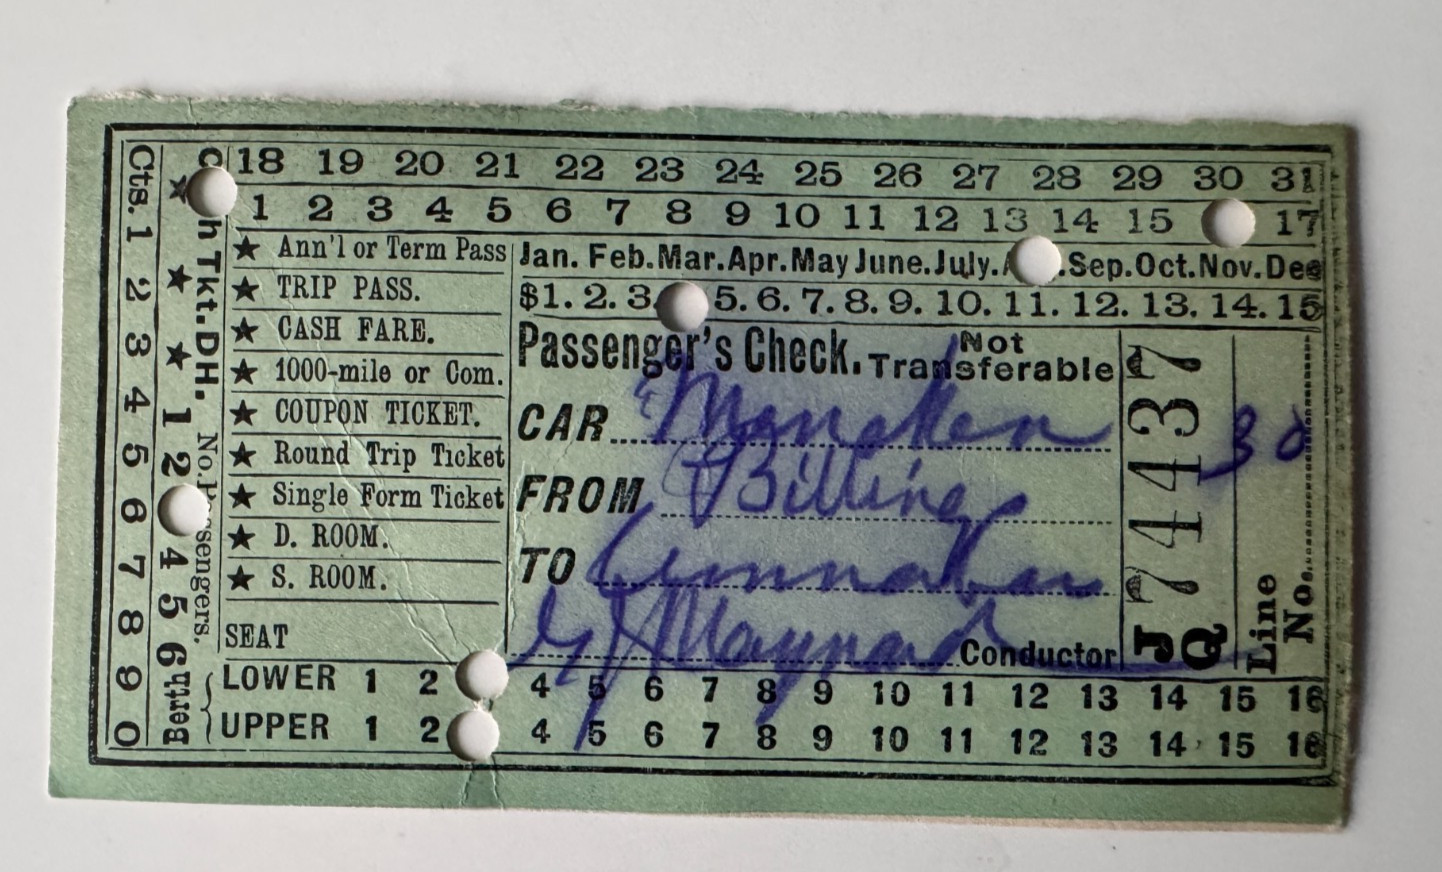 18 19 20 21 22 23 24 25 26 27 28 29 30 31
1 2 3 4 5 6 7 8 9 10 11 12 13 14 15 17
★ Ann'l or Term Pass
★ TRIP PASS.
★ CASH FARE.
★ 1000-mile or Com.
★ COUPON TICKET.
★ Round Trip Ticket
★ Single Form Ticket
★ D. ROOM.
★ S. ROOM.
SEAT
Jan. Feb. Mar. Apr. May June. July. Sep. Oct. Nov. Dec
$1. 2. 3. 5. 6. 7. 8. 9. 10. 11. 12. 13. 14. 15
Passenger's Check. Not Transferable
CAR
FROM Billings
TO
Maynard Conductor
J Q 74437
Line No. 30
LOWER 1 2 4 5 6 7 8 9 10 11 12 13 14 15 16
UPPER 1 2 4 5 6 7 8 9 10 11 12 13 14 15 16
Berth
Cts. 1 2 3 4 5 6 7 8 9 0
★ ★ ★ 1 2 4 5 6
Tkt. DH.
No.